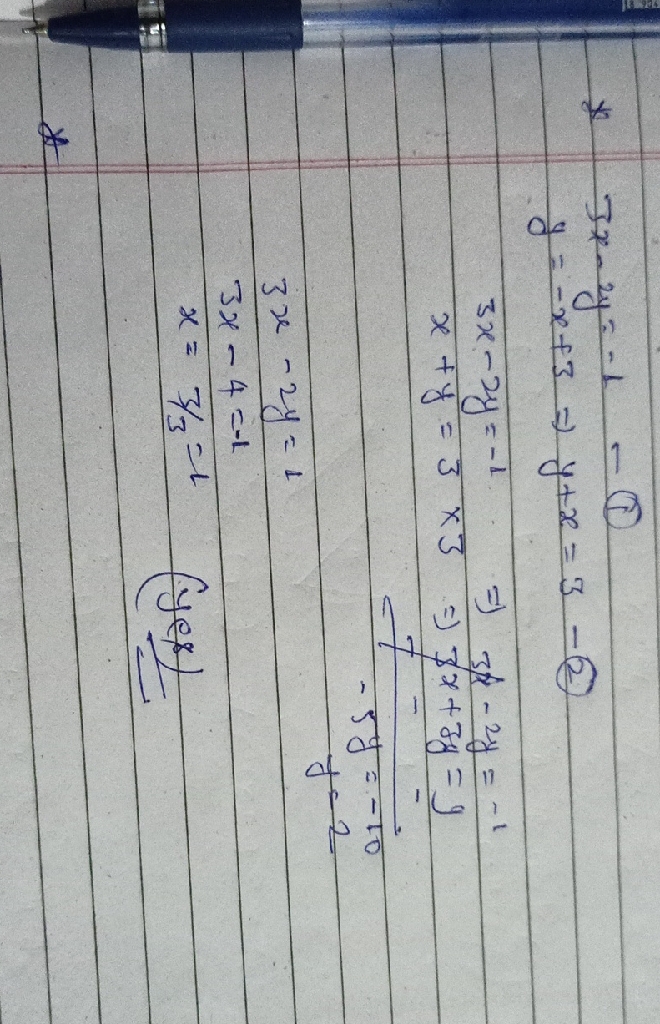 * 3x - 2y = -1 - ①
y = -x + 3 ⇒ y + x = 3 - ②
3x - 2y = -1 ⇒ 3x - 2y = -1
x + y = 3 x3 ⇒ 3x + 3y = 9
- -
-5y = -10
y = 2
3x - 2y = 1
3x - 4 = -1
x = 3/3 = 1
(yes)
*